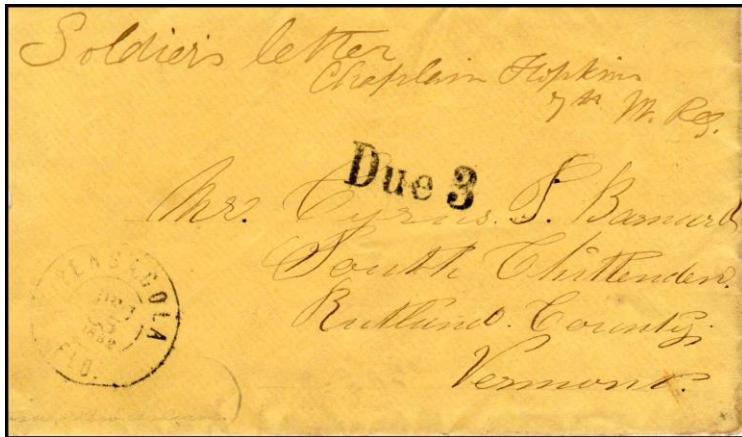 Soldier's letter
Chaplain Hopkins
7th Vt. Reg.
Due 3
Mr. Cyrus. S. Barnard
South Chittenden.
Rutland. County,
Vermont.
PENSACOLA
1862
FLO.